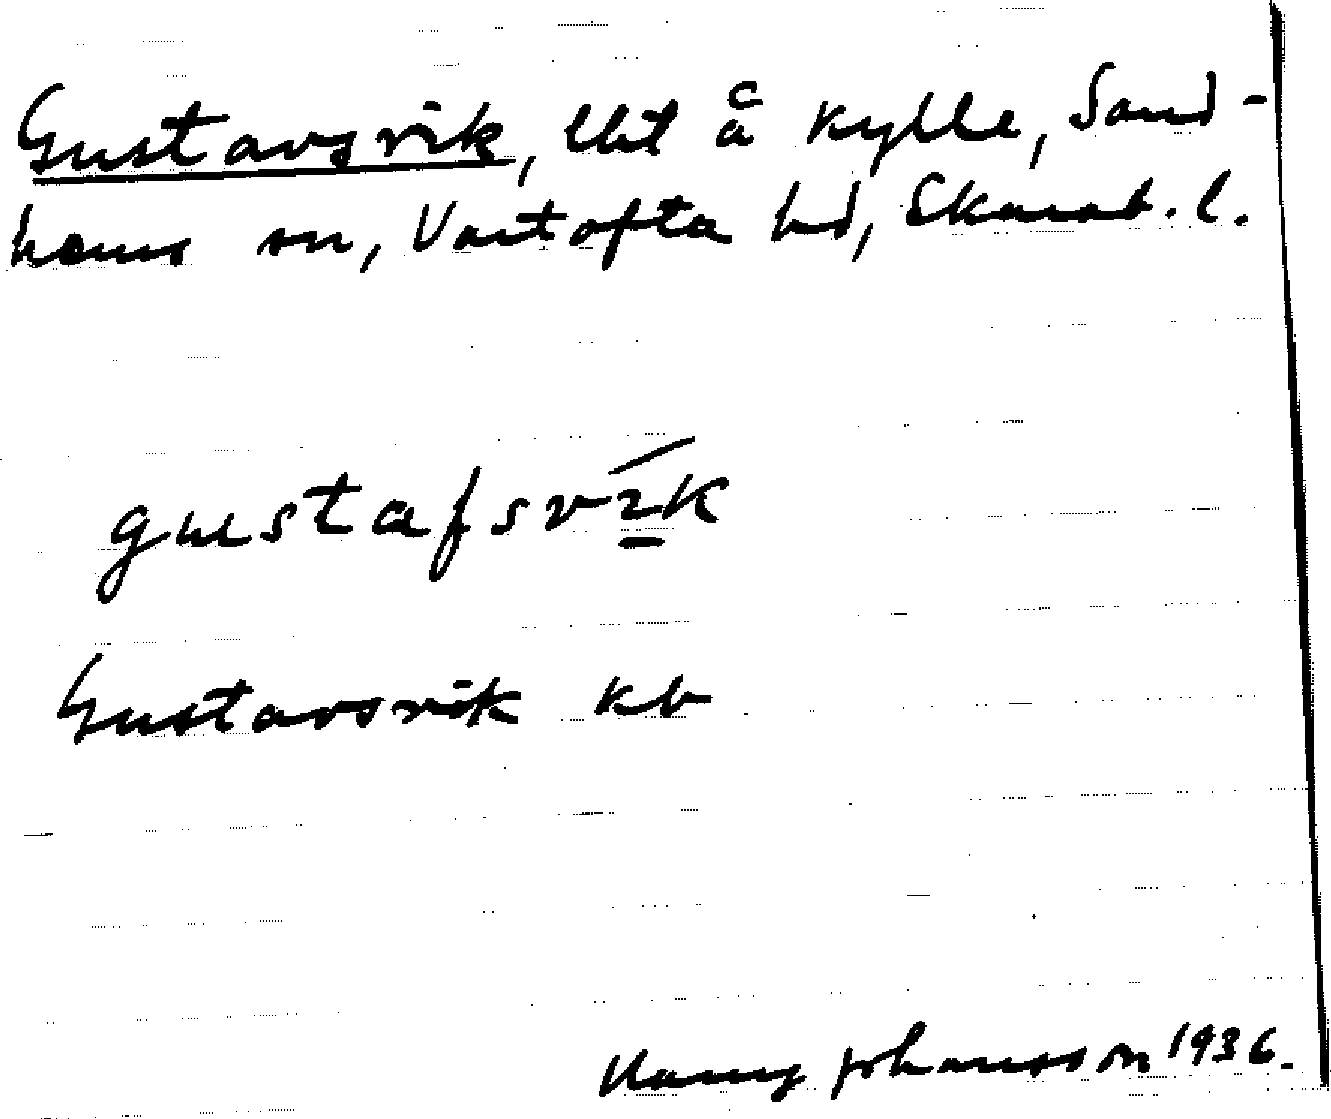 Gustavsvik, lht å Kylle, Sand-
hems sn, Vartofta hd, Skarab. l.
gustafsvík
Gustavsvik kb
Nanny Johansson 1936.